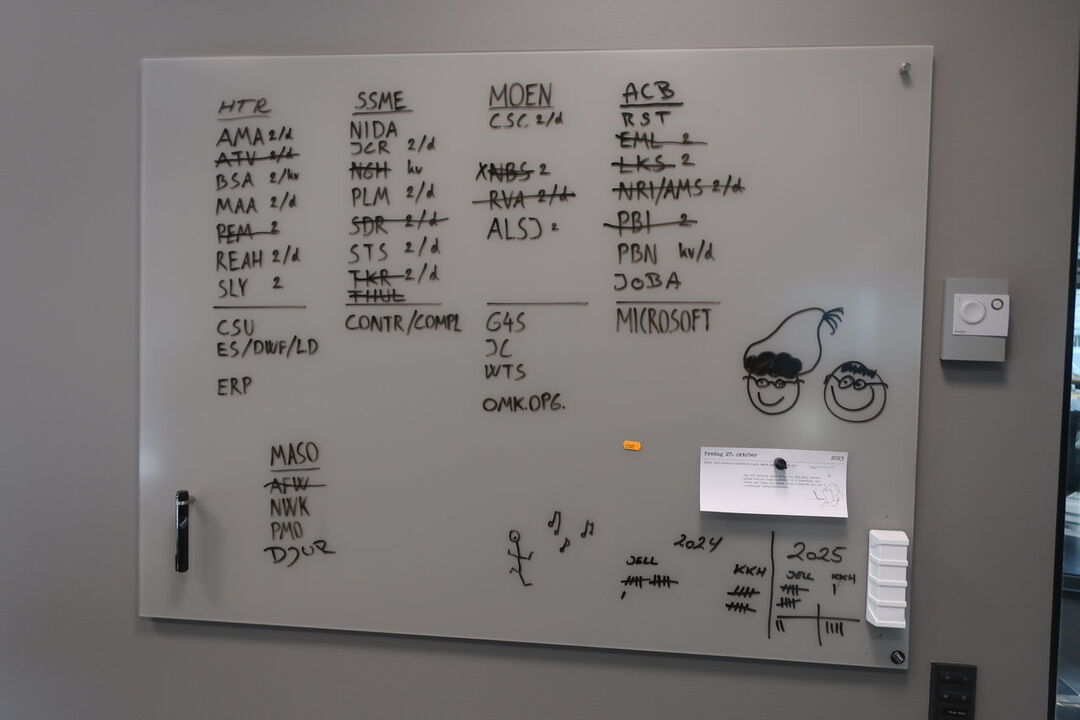 HTR
AMA 2/d
ATV 2/d
BSA 2/hv
MAA 2/d
PEM 2
REAH 2/d
SLY 2
CSU
ES/DWF/LD
ERP
SSME
NIDA
JCR 2/d
NGH hv
PLM 2/d
SDR 2/d
STS 2/d
TKR 2/d
THUL
CONTR/COMPL
MOEN
CSC 2/d
XNBS 2
RVA 2/d
ALSJ 2
G4S
JC
WTS
OMK.OPG.
ACB
RST
EML 2
LKS 2
NRI/AMS 2/d
PBI 2
PBN hv/d
JOBA
MICROSOFT
MASO
AFW
NWK
PMO
DJUR
Fredag 27. oktober 2023
2024
JELL
KKH
2025
JELL KKH